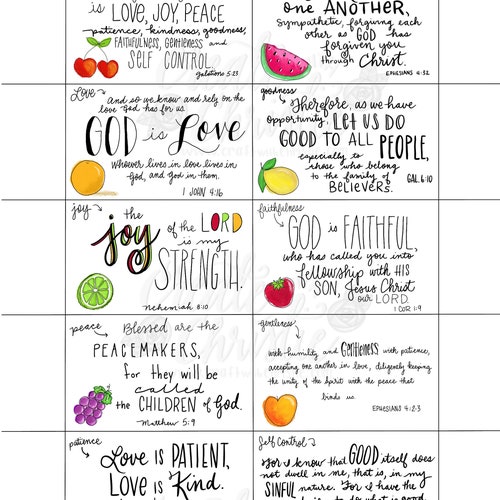 is LOVE, JOY, PEACE
patience, kindness, goodness,
FAITHFULNESS, GENTLENESS and
SELF CONTROL.
galatians 5:23
one ANOTHER,
sympathetic, forgiving each
other as GOD has
forgiven you
through Christ.
EPHESIANS 4:32
Love
And so we know and rely on the
love God has for us.
GOD is Love
Whoever lives in love lives in
God, and God in them.
1 JOHN 4:16
goodness
Therefore, as we have
opportunity, LET US DO
GOOD TO ALL PEOPLE,
especially to
those who belong
to the family of
BELIEVERS.
GAL. 6:10
joy
the
joy of the LORD
is my
STRENGTH.
Nehemiah 8:10
faithfulness
GOD is FAITHFUL,
who has called you into
fellowship with HIS
SON, Jesus Christ
our LORD.
1 COR 1:9
peace
Blessed are the
PEACEMAKERS,
for they will be
called
the CHILDREN of God.
Matthew 5:9
gentleness
with humility and GENTLENESS with patience,
accepting one another in love, diligently keeping
the unity of the Spirit with the peace that
binds us.
EPHESIANS 4:2-3
patience
LOVE is PATIENT,
LOVE is KIND.
Self Control
For I know that GOOD itself does
not dwell in me, that is, in my
SINFUL nature. For I have the